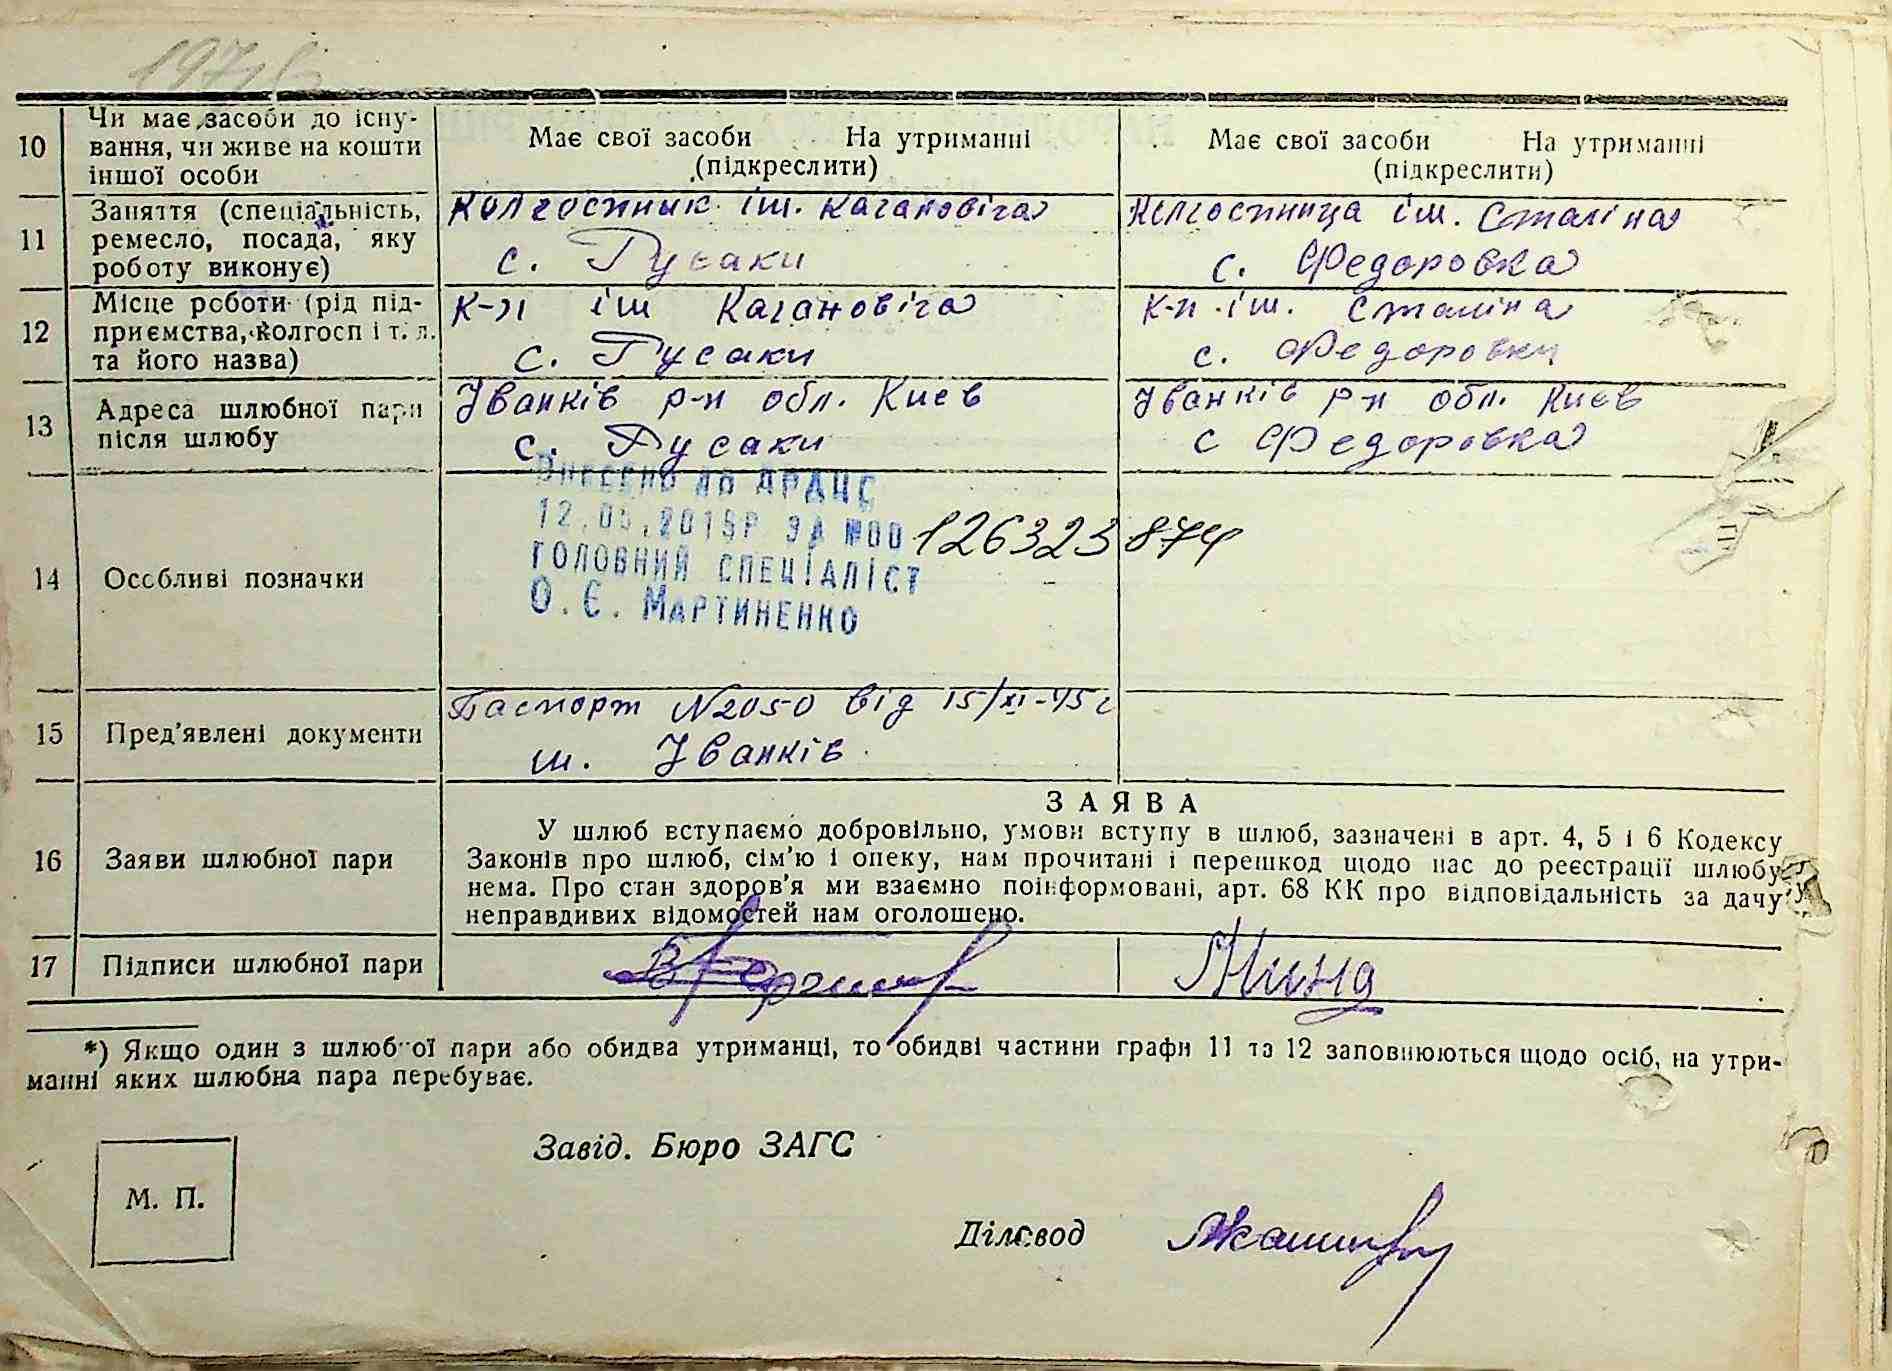 10
Чи має засоби до існу-
вання, чи живе на кошти
іншої особи
Має свої засоби На утриманні
(підкреслити)
Має свої засоби На утриманні
(підкреслити)
11
Заняття (спеціальність,
ремесло, посада, яку
роботу виконує)
Колгоспнык ім. Кагановіга
с. Гусаки
Колгоспница ім. Сталіна
с. Федоровка
12
Місце роботи (рід під-
приємства, колгосп і т. п.
та його назва)
к-п ім Кагановіга
с. Гусаки
к-п ім. Сталіна
с. Федоровки
13
Адреса шлюбної пари
після шлюбу
Іванків р-н обл. Киев
с. Гусаки
Іванків р-н обл. Києв
с Федоровка
14
Особливі позначки
ВНЕСЕНО ДО ДРАЦС
12.05.2015Р ЗА №00 126323874
ГОЛОВНИЙ СПЕЦІАЛІСТ
О.Є. МАРТИНЕНКО
15
Пред'явлені документи
Паспорт N2050 від 15/XI-45г
м. Іванків
16
Заяви шлюбної пари
ЗАЯВА
У шлюб вступаємо добровільно, умови вступу в шлюб, зазначені в арт. 4, 5 і 6 Кодексу
Законів про шлюб, сім'ю і опеку, нам прочитані і перешкод щодо нас до реєстрації шлюбу
нема. Про стан здоров'я ми взаємно поінформовані, арт. 68 КК про відповідальність за дачу
неправдивих відомостей нам оголошено.
17
Підписи шлюбної пари
*) Якщо один з шлюбної пари або обидва утриманці, то обидві частини графи 11 та 12 заповнюються щодо осіб, на утри-
манні яких шлюбна пара перебуває.
М. П.
Завід. Бюро ЗАГС
Діловод